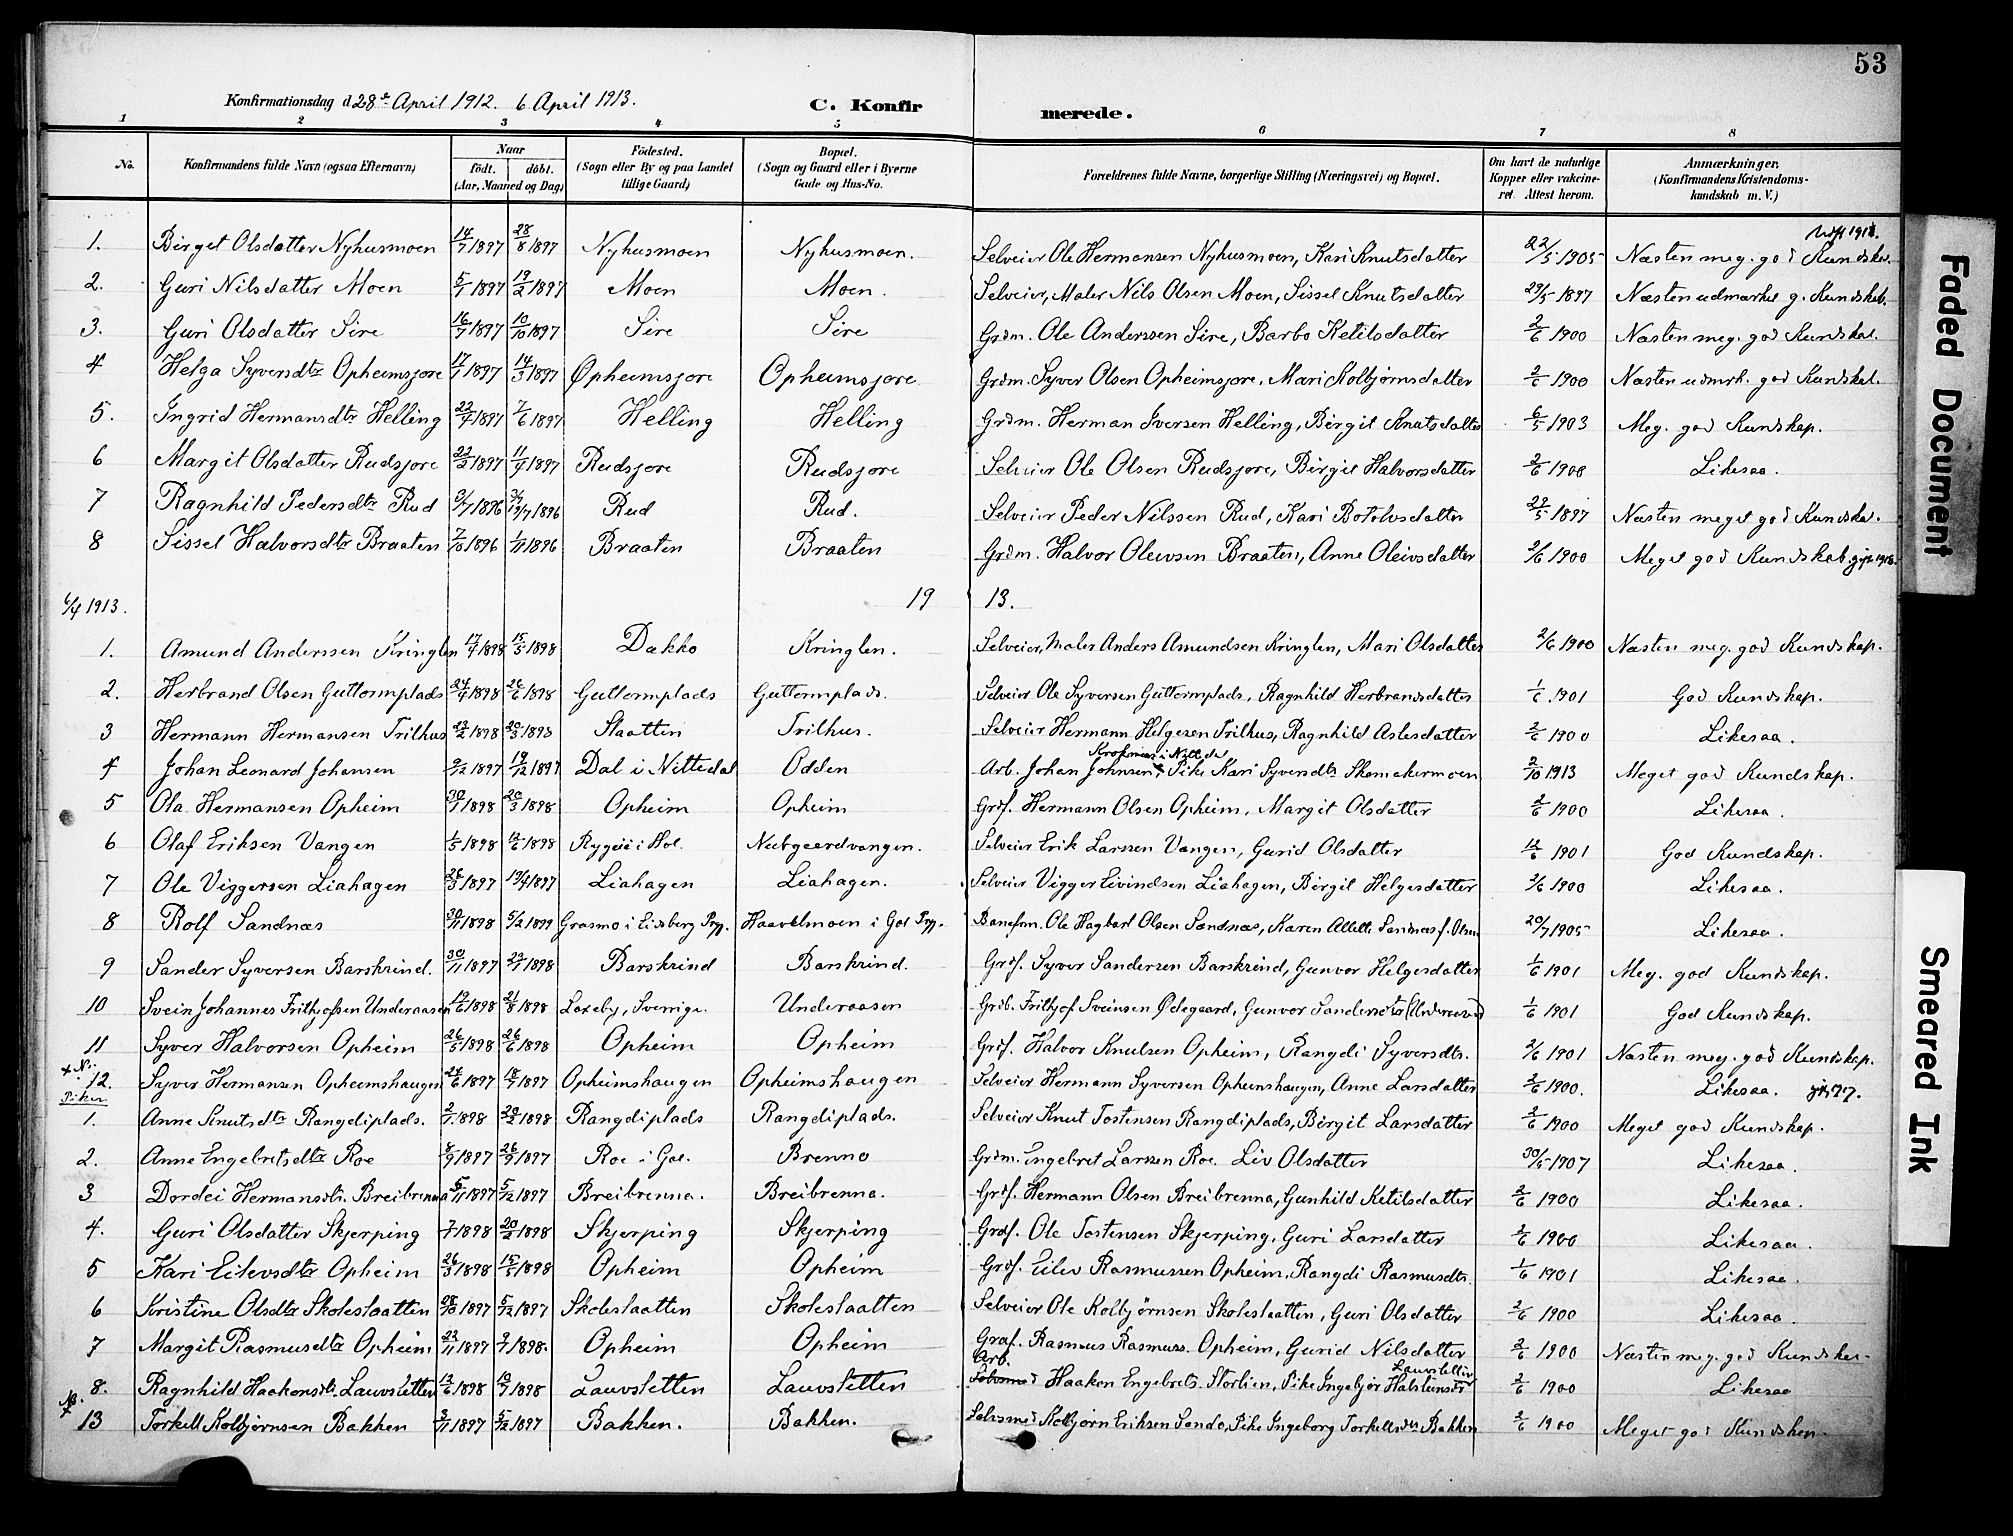 53
Konfirmationsdag d 28de April 1912. 6 April 1913. C. Konfirmerede.
1 2 3 4 5 6 7 8
No. Konfirmandens fulde Navn (ogsaa Efternavn) Naar født. døbt. (Aar, Maaned og Dag) Fødested. (Sogn eller By og paa Landet tillige Gaard) Bopæl. (Sogn og Gaard eller i Byerne Gade og Hus-No. Forældrenes fulde Navne, borgerlige Stilling (Næringsvei) og Bopæl. Om havt de naturlige Kopper eller vakcineret. Attest herom. Anmærkninger. (Konfirmandens Kristendomskundskab m. V.)
1. Birget Olsdatter Nyhusmoen 14/7 1897 28/8 1897 Nyhusmoen Nyhusmoen. Selveier Ole Hermansen Nyhusmoen, Kari Knutsdatter 22/5 1905 Næsten meg. god Kundskab.
2. Guri Nilsdatter Moen 5/1 1897 19/2 1897 Moen Moen. Selveier, Maler Nils Olsen Moen, Sissel Knutsdatter 29/5 1897 Næsten udmærket g. Kundskab.
3. Guri Olsdatter Sire 16/7 1897 10/10 1897 Sire Sire Grdm. Ole Anderssen Sire, Barbo Ketilsdatter 2/6 1900 Næsten meg. god Kundskab.
4 Helga Syversdtr Opheimsjore 17/1 1897 14/3 1897 Opheimsjore Opheimsjore Grdm. Syver Olsen Opheimsjore, Mari Kolbjørnsdatter 2/6 1900 Næsten udmrk. god Kundskab.
5. Ingrid Hermansdtr Helling 22/4 1897 7/6 1897 Helling Helling Grdm. Herman Iversen Helling, Birgit Knutsdatter 6/5 1903 Meg. god Kundskap.
6 Margit Olsdatter Rudsjore 22/2 1897 11/4 1897 Rudsjore Rudsjore Selveier Ole Olsen Rudsjore, Birgit Halvorsdatter 2/6 1900 Likesaa.
7 Ragnhild Pedersdtr Rud 3/7 1896 19/7 1896 Rud Rud. Selveier Peder Nilssen Rud, Kari Botolvsdatter 29/5 1897 Næsten meget god Kundskab.
8 Sissel Halvorsdtr Braaten 7/10 1896 1/11 1896 Braaten Braaten Grdm. Halvor Oleivsen Braaten, Anne Oleivsdatter 2/6 1900 Meget god Kundskab
6/4 1913. 19 13.
1. Amund Anderssen Kringlen 17/4 1898 15/5 1898 Dokko Kringlen. Selveier, Maler Anders Amundsen Kringlen, Mari Olsdatter 2/6 1900 Næsten meg. god Kundskap.
2. Herbrand Olsen Guttormplads 24/4 1898 26/6 1898 Guttormplads Guttormplads. Selveier Ole Syversen Guttormplads, Ragnhild Herbrandsdatter 1/6 1901 God Kundskap.
3 Hermann Hermansen Trilhus 23/2 1898 20/3 1898 Slaatten Trilhus. Selveier Hermann Helgesen Trilhus, Ragnhild Aslesdatter 2/6 1900 Likesaa.
4 Johan Leonard Johansen 9/12 1897 19/12 1897 Dal i Nittedal Odden Arb. Johan Johnsen, Pike Kari Syversdtr Skomakermoen 2/10 1913 Meget god Kundskap.
5 Ola Hermansen Opheim 30/1 1898 20/3 1898 Opheim Opheim Grdf. Hermann Olsen Opheim, Margit Olsdatter 2/6 1900 Likesaa.
6 Olaf Eriksen Vangen 1/5 1898 12/6 1898 Rygøii i Hol. Nubgaardvangen. Selveier Erik Larssen Vangen, Gurid Olsdatter 12/6 1901 God Kundskap.
7 Ole Viggersen Liahagen 26/3 1897 19/4 1897 Liahagen Liahagen. Selveier Vigger Eivindsen Liahagen, Birgit Helgesdatter 2/6 1900 Likesaa.
8 Rolf Sandnæs 30/11 1898 5/2 1899 Grasmo i Eidsberg Pgj. Haavelmoen i Gol Pgj. Banefm. Ole Hagbart Olsen Sandnæs, Karen Allette Sandnæs f. Olsen 20/7 1905 Likesaa.
9 Sander Syversen Barskrind. 30/11 1897 22/1 1898 Barskrind Barskrind. Grdf. Syver Sandersen Barskrind, Gunvor Helgesdatter 1/6 1901 Meg. god Kundskap.
10 Svein Johannes Frithjofsen Underaasen 19/6 1898 21/8 1898 Laxeby, Sverige. Underaasen Grdb. Frithjof Sveinsen Ødegaard, Gunvor Sandersdtr (Underaasen) 1/6 1901 God Kundskap.
11 Syver Halvorsen Opheim 26/5 1898 26/6 1898 Opheim Opheim Grdf. Halvor Knutsen Opheim, Rangdi Syversdtr. 2/6 1901 Næsten meg. god Kundskap.
12. Syver Hermansen Opheimshaugen 24/6 1897 18/7 1897 Opheimshaugen Opheimshaugen Selveier Hermann Syversen Opheimshaugen, Anne Larsdatter 2/6 1900. Likesaa.
Piker
1. Anne Knutsdtr Rangdiplads. 2/1 1898 20/2 1898 Rangdiplads Rangdiplads. Selveier Knut Tostensen Rangdiplads, Birgit Larsdatter 2/6 1900 Meget god Kundskap.
2. Anne Engebretsdtr Roe 8/9 1897 26/9 1897 Roe i Gol. Brenno Grdm. Engebret Larssen Roe. Liv Olsdatter 30/5 1907 Likesaa.
3 Dordei Hermansdtr. Breibrenna 5/11 1897 5/12 1897 Breibrenna. Breibrenna. Grdf. Hermann Olsen Breibrenna, Gunhild Ketilsdatter 2/6 1900 Likesaa.
4. Guri Olsdatter Skjerping 7/1 1898 20/2 1898 Skjerping Skjerping Grdf. Ole Tostensen Skjerping, Guri Larsdatter 2/6 1900 Likesaa.
5 Kari Eilevsdtr Opheim 26/3 1898 15/5 1898 Opheim Opheim Grdf. Eilev Rasmussen Opheim, Rangdi Rasmusdtr. 1/6 1901 Likesaa.
6 Kristine Olsdtr Skoleslaatten 28/10 1897 5/12 1897 Skoleslaatten Skoleslaatten Selveier Ole Kolbjørnsen Skoleslaatten, Guri Olsdatter 2/6 1900 Likesaa.
7 Margit Rasmusdtr Opheim 22/11 1897 9/1 1898. Opheim Opheim Grdf. Rasmus Rasmuss. Opheim, Gurid Nilsdatter 2/6 1900 Næsten meg. god Kundskap.
8. Ragnhild Haakensdtr. Lauvsletten 12/6 1898 10/7 1898 Lauvsletten Lauvsletten Arb. Haaken Engebrets. Storlien, Pike Ingebjør Halstensdtr Lauvsletten 2/6 1900 Likesaa
13 Torkell Kolbjørnsen Bakken 3/11 1897 5/12 1897 Bakken. Bakken. Kolbjørn Eriksen Sando, Pike Ingeborg Torkellsdtr Bakken 2/6 1900 Meget god Kundskap.
Faded Document
Smeared Ink